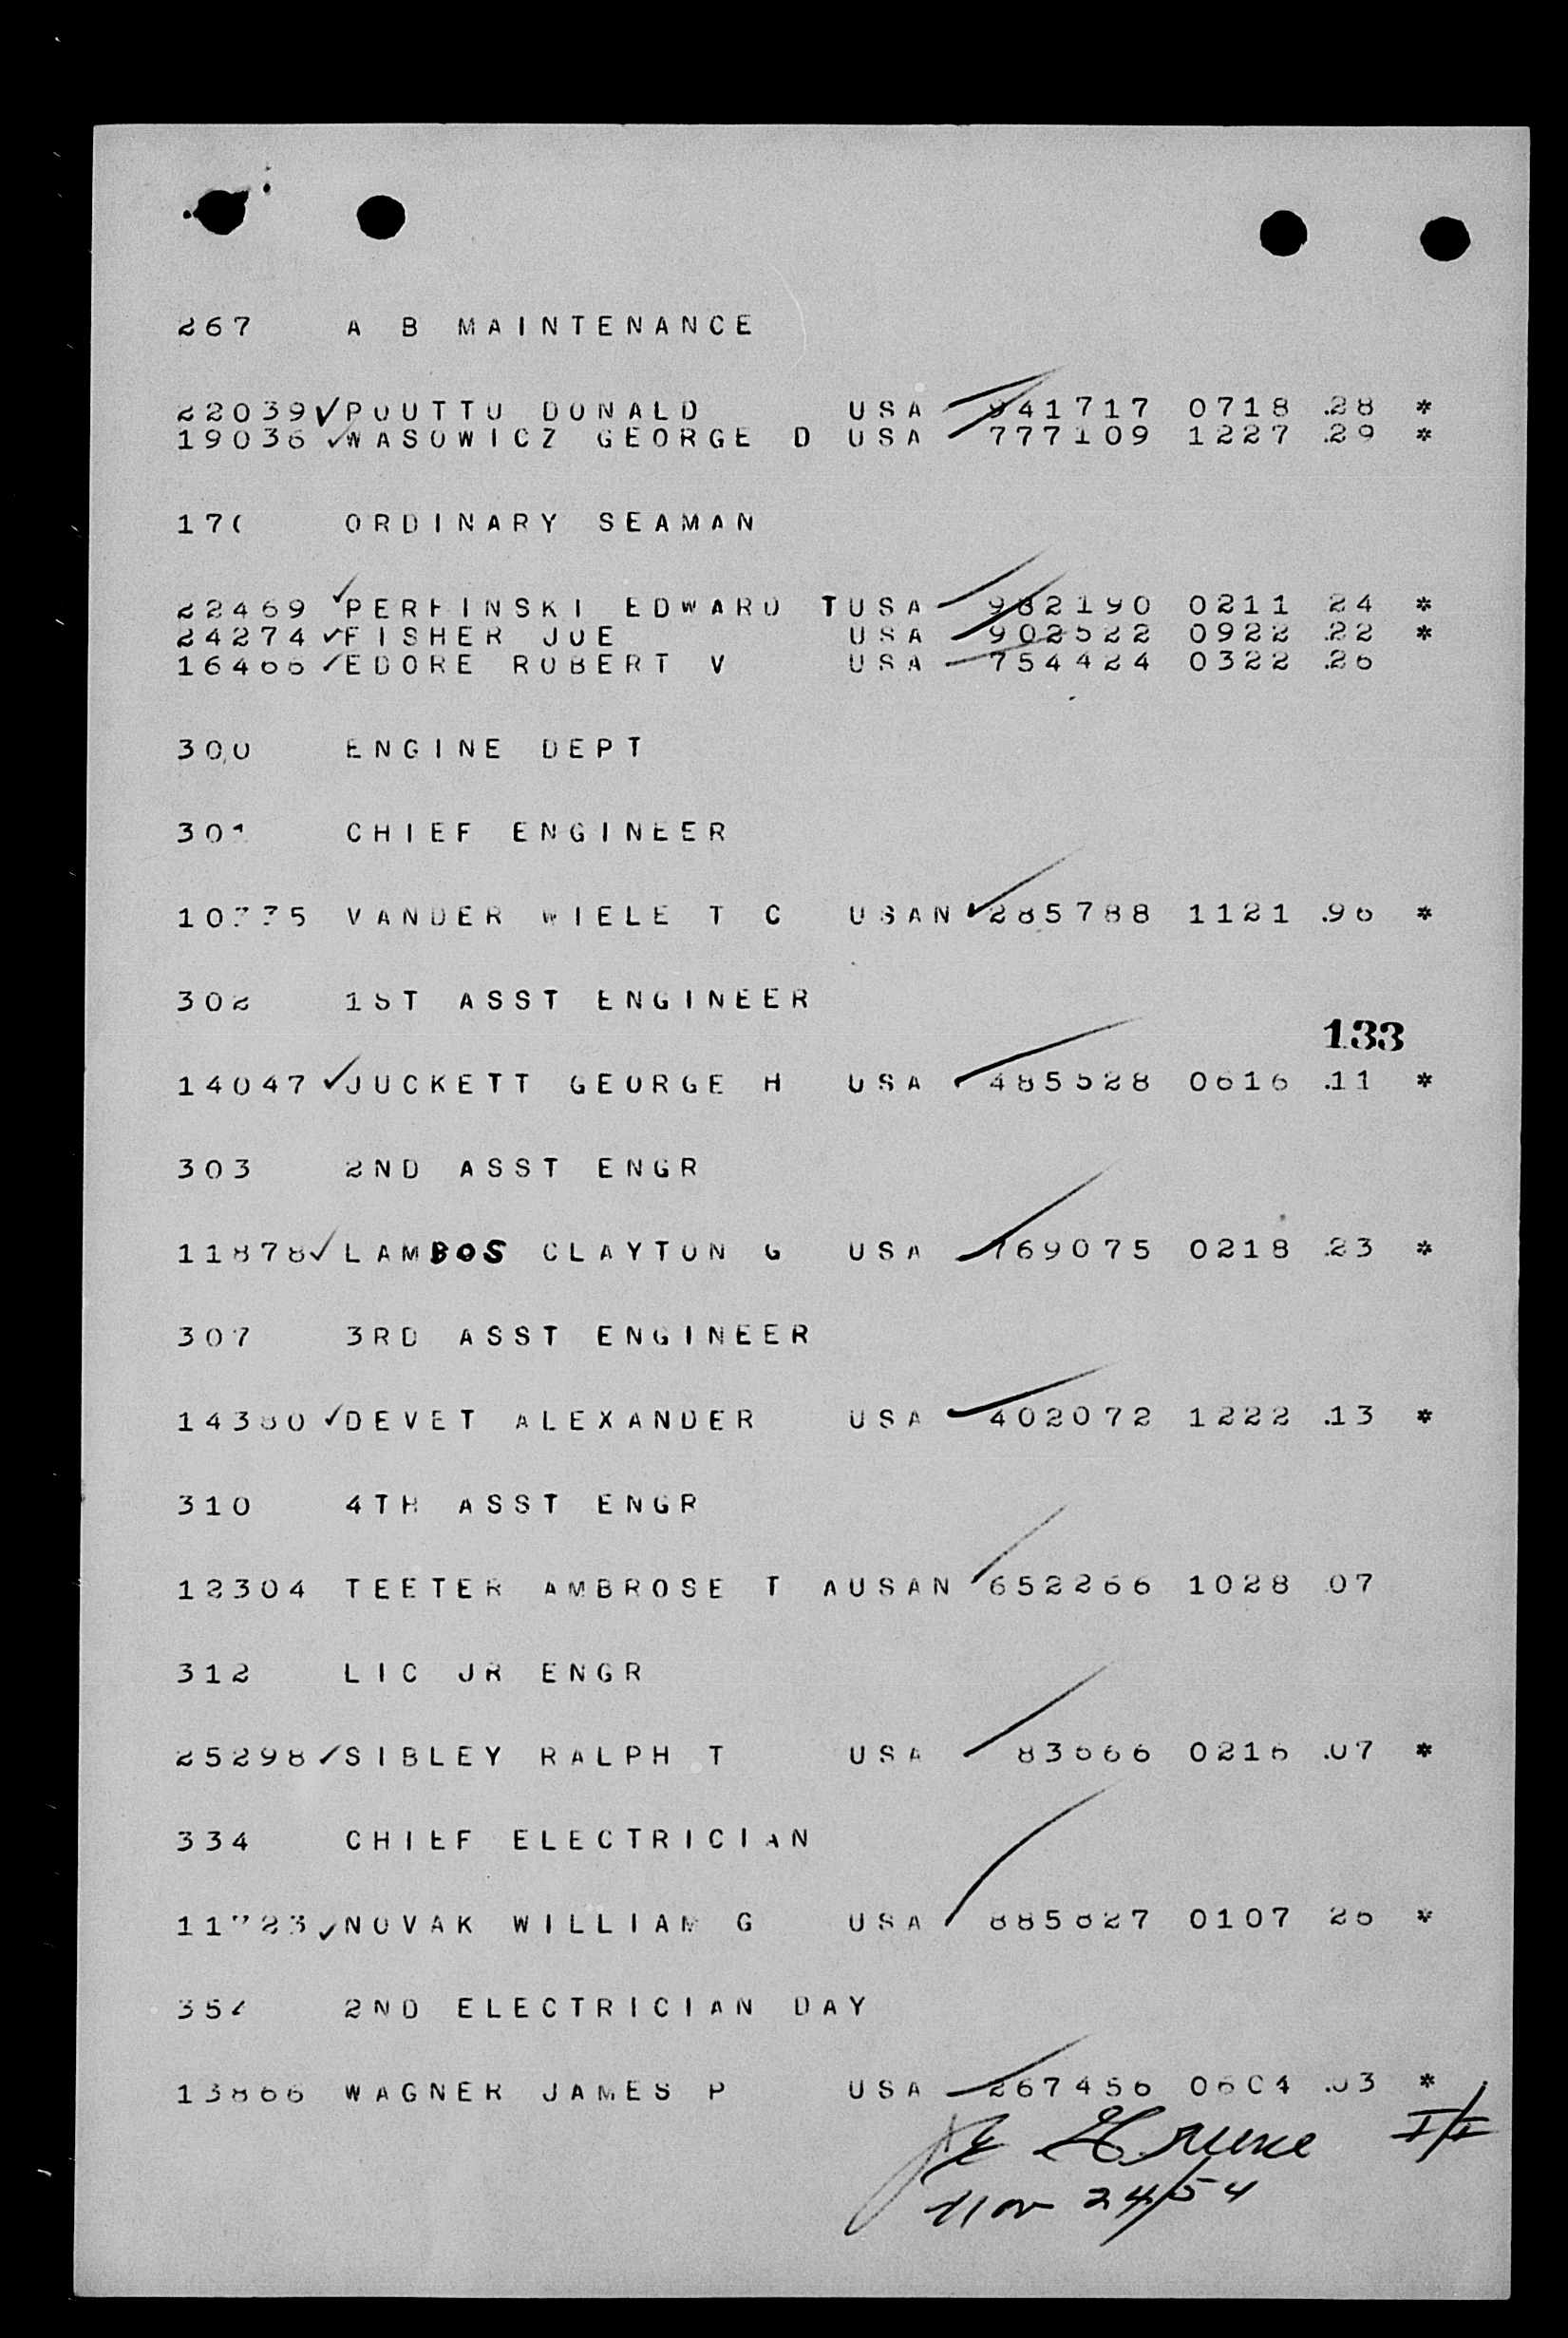 267 A B MAINTENANCE
22039 POUTTU DONALD USA 941717 0718 .28 *
19036 WASOWICZ GEORGE D USA 777109 1227 .29 *
ORDINARY SEAMAN
22469 EDWARD T USA 982190 0211 24 *
24274 FISHER JOE USA 902522 0922 .22 *
16466 EDORE ROBERT V USA 754424 0322 .26
300 ENGINE DEPT
301 CHIEF ENGINEER
VANDER WIELE T C USAN 285788 1121 .96 *
302 1ST ASST ENGINEER
133
14047 JUCKETT GEORGE H USA 485528 0616 .11 *
303 2ND ASST ENGR
11878 LAMBOS CLAYTON G USA 769075 0218 .23 *
307 3RD ASST ENGINEER
14380 DEVET ALEXANDER USA 402072 1222 .13 *
310 4TH ASST ENGR
12304 TEETER AMBROSE T A USAN 652266 1028 07
312 LIC JR ENGR
25298 SIBLEY RALPH T USA 83666 0216 .07 *
334 CHIEF ELECTRICIAN
NOVAK WILLIAM G USA 0107 26 *
2ND ELECTRICIAN DAY
13866 WAGNER JAMES P USA 267456 0604 .03 *
Nov 24/54